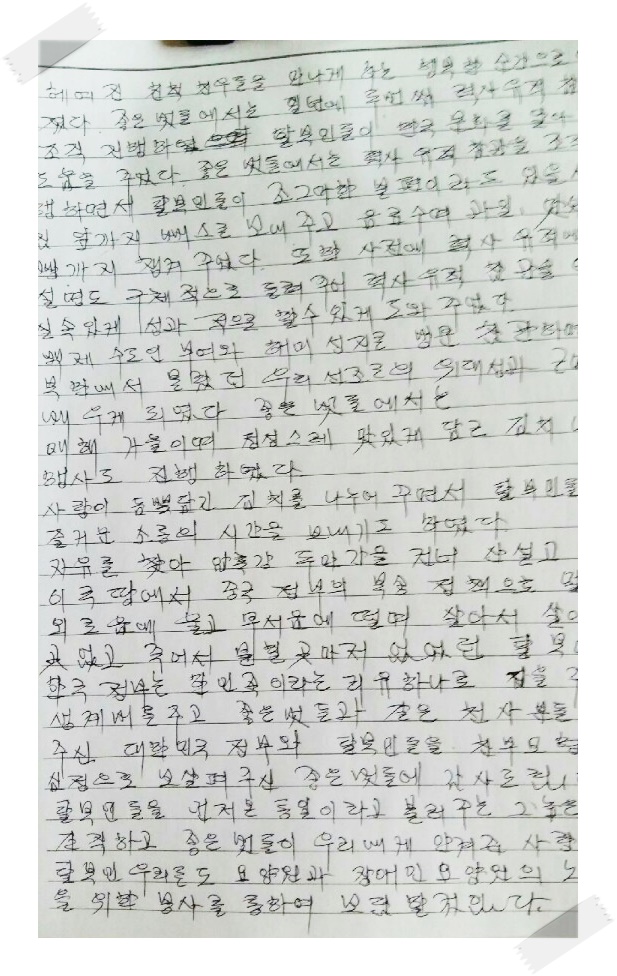 헤여진 친척 친우들을 만나게 하는 행복한 순간으로
졌다. 좋은 벗들에서는 일년에 두번씩 력사 유적
조직 진행하였 탈북민들이 한국 문화를
도움을 주었다. 좋은 벗들에서는 력사 유적 참관을 조직
하면서 탈북민들이 조그마한 불편이라도 있을
집 앞까지 뻐스로 보내 주고 음료수며 과일,
까지 챙겨 주었다. 또한 사전에 력사 유적에
설명도 구체적으로 들려주어 력사 유적 참관을
실속있게 성과적으로 할수 있게 도와 주었다
백제 수도인 부여와 해미 성지를 방문 참관하며
북한에서 몰랐던 우리 선조들의 위대성과
배우게 되였다 좋은 벗들에서는
매해 가을이며 정성스레 맛있게 담근 김치
행사도 진행하였다
사랑이 듬뿍담긴 김치를 나누어 주면서 탈북민들
즐거운 소통의 시간을 보내기도 하였다
자유를 찾아 압록강 두만강을 건너 산설고
이국땅에서 중국 정부의 북송 정책으로
외로움에 울고 무서움에 떨며 살아서
곳 없고 죽어서 묻힐 곳마저 없었던 탈북
한국 정부는 한민족이라는 리유하나로 집을
생계비를 주고 좋은 벗들과 같은 천사분들
주신 대한민국 정부와 탈북민들을 친부모
심정으로 보살펴주신 좋은 벗들에 감사드립니
탈북민들을 먼저온 통일이라고 불러주는 그
간직하고 좋은 벗들이 우리에게 안겨준 사랑
탈북민 우리들도 요양원과 장애인 요양원의
을 위한 봉사를 통하여 보답 할것입니다.